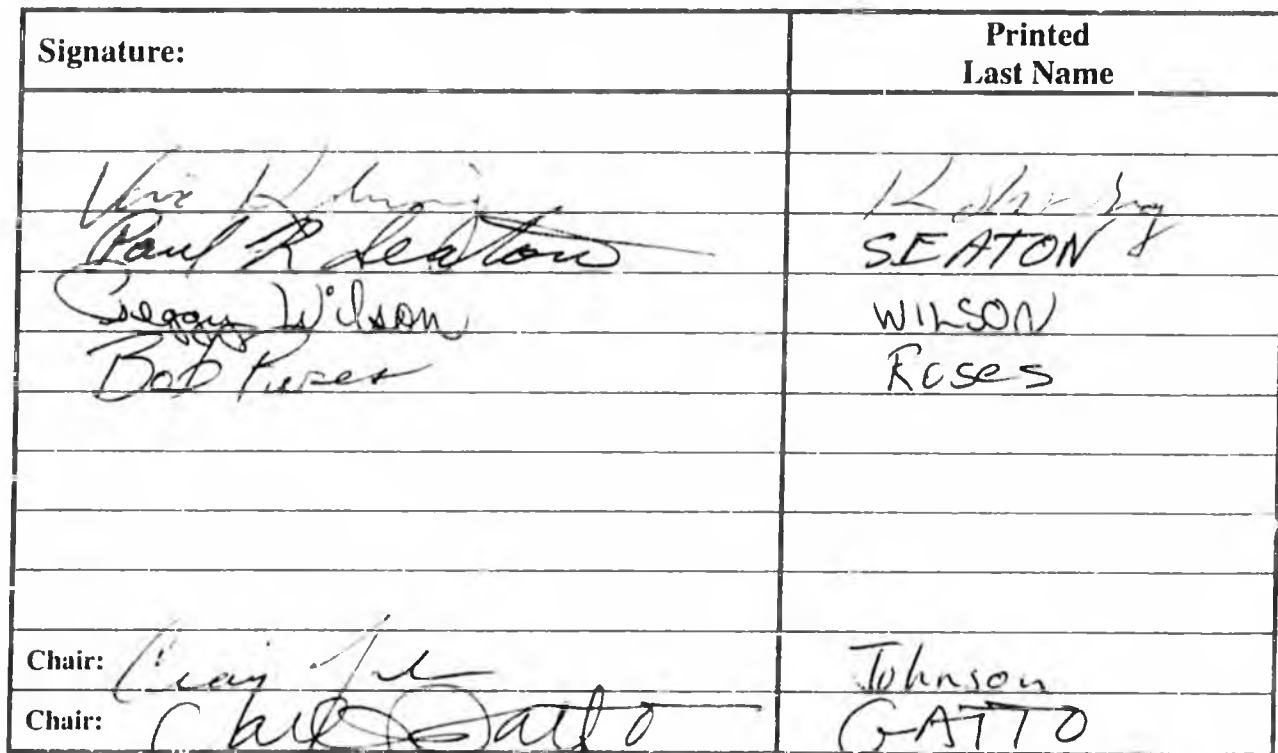 Signature: Printed Last Name
Paul R Seaton SEATON
Peggy Wilson WILSON
Bob Roses Roses
Chair: Craig Johnson
Chair: Carl Gatto GATTO